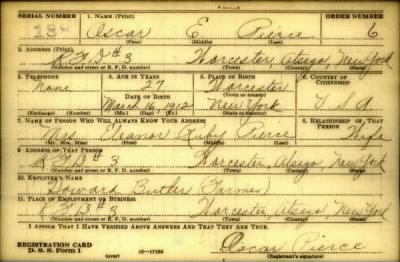 SERIAL NUMBER 1. NAME (Print) ORDER NUMBER
Oscar E. Pierce 6
(First) (Middle) (Last)
2. ADDRESS (Print)
R.F.D.#3 Worcester, Otsego, New York
(Number and street or R. F. D. number) (Town) (County) (State)
3. TELEPHONE 4. AGE IN YEARS 5. PLACE OF BIRTH 6. COUNTRY OF CITIZENSHIP
None 27 Worcester
DATE OF BIRTH (Town or county)
March 16, 1912 New York U S A
(Exchange) (Number) (Mo.) (Day) (Yr.) (State or country)
7. NAME OF PERSON WHO WILL ALWAYS KNOW YOUR ADDRESS 8. RELATIONSHIP OF THAT PERSON
Mrs. Eleanor Ruby Pierce Wife
(Mr., Mrs., Miss) (First) (Middle) (Last)
9. ADDRESS OF THAT PERSON
R.F.D.#3 Worcester, Otsego, New York
(Number and street or R. F. D. number) (Town) (County) (State)
10. EMPLOYER'S NAME
Howard Butler (Farmer)
11. PLACE OF EMPLOYMENT OR BUSINESS
R.F.D.#3 Worcester, Otsego, New York
(Number and street or R. F. D. number) (Town) (County) (State)
I AFFIRM THAT I HAVE VERIFIED ABOVE ANSWERS AND THAT THEY ARE TRUE.
REGISTRATION CARD
D. S. S. Form 1 (over) 16—17105 Oscar Pierce
(Registrant's signature)